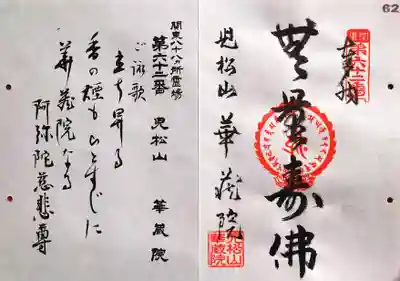 62
奉拝
第六十二番
無量寿佛
児松山 華蔵院
児松山
華蔵院
関東八十八ヵ所霊場
第六十二番 児松山 華蔵院
ご詠歌
立ち昇る
香の煙もひとすじに
華蔵院なる
阿弥陀慈悲尊